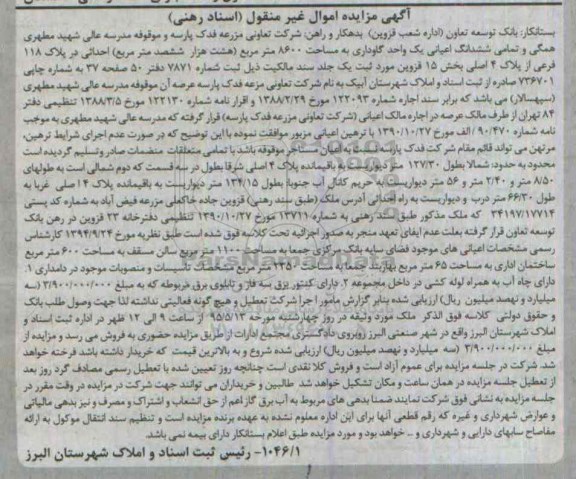 آگهی مزایده اموال غیر منقول (اسناد رهنی)
بستانکار: بانک توسعه تعاون (اداره شعب قزوین) بدهکار و راهن: شرکت تعاونی مزرعه فدک پارسه و موقوفه مدرسه عالی شهید مطهری
همگی و تمامی ششدانگ اعیانی یک واحد گاوداری به مساحت ۸۶۰۰ متر مربع (هشت هزار ششصد متر مربع) احداثی در پلاک ۱۱۸
فرعی از پلاک ۴ اصلی بخش ۱۵ قزوین مورد ثبت یک جلد سند مالکیت ذیل ثبت شماره ۷۸۷۱ دفتر ۵۰ صفحه ۳۷ به شماره چاپی
۷۳۶۷۰۱ صادره از ثبت اسناد و املاک شهرستان آبیک به نام شرکت تعاونی مزعه فدک پارسه عرصه آن موقوفه مدرسه عالی شهید مطهری
(سپهسالار) می باشد که برابر سند اجاره شماره ۱۲۲۰۹۳ مورخ ۱۳۸۸/۲/۲۹ و اقرار نامه شماره ۱۲۲۱۳۰ مورخ ۱۳۸۸/۳/۵ تنظیمی دفتر
۸۴ تهران از طرف مالک عرصه در اجاره مالک اعیانی (شرکت تعاونی مزرعه فدک پارسه) قرار گرفته که مدرسه عالی شهید مطهری به موجب
نامه شماره ۹۰/۴۷۰/الف مورخ ۱۳۹۰/۱۰/۲۷ با ترهین اعیانی مزبور موافقت نموده با این توضیح که در صورت عدم اجرای شرایط ترهین،
مرتهن می تواند قائم مقام شرکت فدک پارسه نسبت به اعیان مستاجر موقوفه باشد با تمامی متعلقات منضمات صادر و تسلیم گردیده است
محدود به حدود: شمالا بطول ۱۲۷/۳۰ متر دیواریست به باقیمانده پلاک ۴ اصلی شرقا بطول در سه قسمت که دوم شمالی است به طولهای
۸/۵۰ متر و ۲/۴۰ متر و ۵۶ متر دیواریست به حریم کانال آب جنوبا: بطول ۱۳۴/۱۵ متر دیواریست به باقیمانده پلاک ۴ اصلی غربا به
طول ۶۶/۳۰ متر درب و دیواریست به راه احداثی آدرس ملک (طبق سند رهنی) قزوین جاده خاکعلی مزرعه فیض آباد به شماره کد پستی
۳۴۱۹۷/۱۷۷۱۴ که ملک مذکور طبق سند رهنی به شماره ۱۳۷۱۱ مورخ ۱۳۹۰/۱۰/۲۷ تنظیمی دفترخانه ۲۳ قزوین در رهن بانک
توسعه تعاون قرار گرفته بعلت عدم ایفای تعهد منجر به صدور اجرائیه تحت کلاسه فوق شده است طبق نظریه مورخ ۱۳۹۴/۹/۲۴ کارشناس
رسمی مشخصات اعیانی های موجود فضای سایه بانک مرکزی جمعا به مساحت ۱۱۰۰ متر مربع سالن مسقف به مساحت ۶۰۰ متر مربع
ساختمان اداری به مساحت ۶۵ متر مربع بهاربند جمعا به مساحت ۲۳۵۰ متر مربع مشخصات تأسیسات و منصوبات موجود در دامداری ۱.
دارای چاه آب به همراه لوله کشی در داخل مجموعه ۲. دارای کنتور برق سه فاز و تابلوی برق مربوطه که به مبلغ ۳/۹۰۰/۰۰۰/۰۰۰ (سه
میلیارد و نهصد میلیون ریال) ارزیابی شده بنابر گزارش مامور اجرا شرکت تعطیل و هیچ گونه فعالیتی نداشته لذا جهت وصول طلب بانک
و حقوق دولتی کلاسه فوق الذکر ملک مورد وثیقه در روز چهارشنبه مورخه ۹۵/۵/۱۳ از ساعت ۹ الی ۱۲ ظهر در اداره ثبت اسناد و
املاک شهرستان البرز واقع در شهر صنعتی البرز روبروی دادگستری مجتمع ادارات از طریق مزایده حضوری به فروش می رسد و مزایده از
مبلغ ۳/۹۰۰/۰۰۰/۰۰۰ (سه میلیارد و نهصد میلیون ریال) ارزیابی شده شروع و به بالاترین قیمت که خریدار داشته باشد فرخته خواهد
شد. شرکت در جلسه مزایده برای عموم آزاد است و فروش کلا نقدی است چنانچه روز تعیین شده با تعطیل رسمی مصادف گردد روز بعد
از تعطیل جلسه مزایده در همان ساعت و مکان تشکیل خواهد شد. طالبین و خریداران می توانند جهت شرکت در مزایده در وقت مقرر در
جلسه مزایده به نشانی فوق شرکت نمایند ضمنا بدهی های مربوط به آب برق گاز اعم از حق انشعاب و اشتراک و مصرف و نیز بدهی مالیاتی
و عوارض شهرداری و غیره که رقم قطعی آنها برای این اداره معلوم نشده به عهده برنده مزایده است و تنظیم سند انتقال موکول به ارائه
مفاصاح سابهای دارایی و شهرداری و ... خواهد بود و مورد مزایده طبق اعلام بستانکار دارای بیمه نمی باشد.
۱۰۴۶/۱- رئیس ثبت اسناد و املاک شهرستان البرز